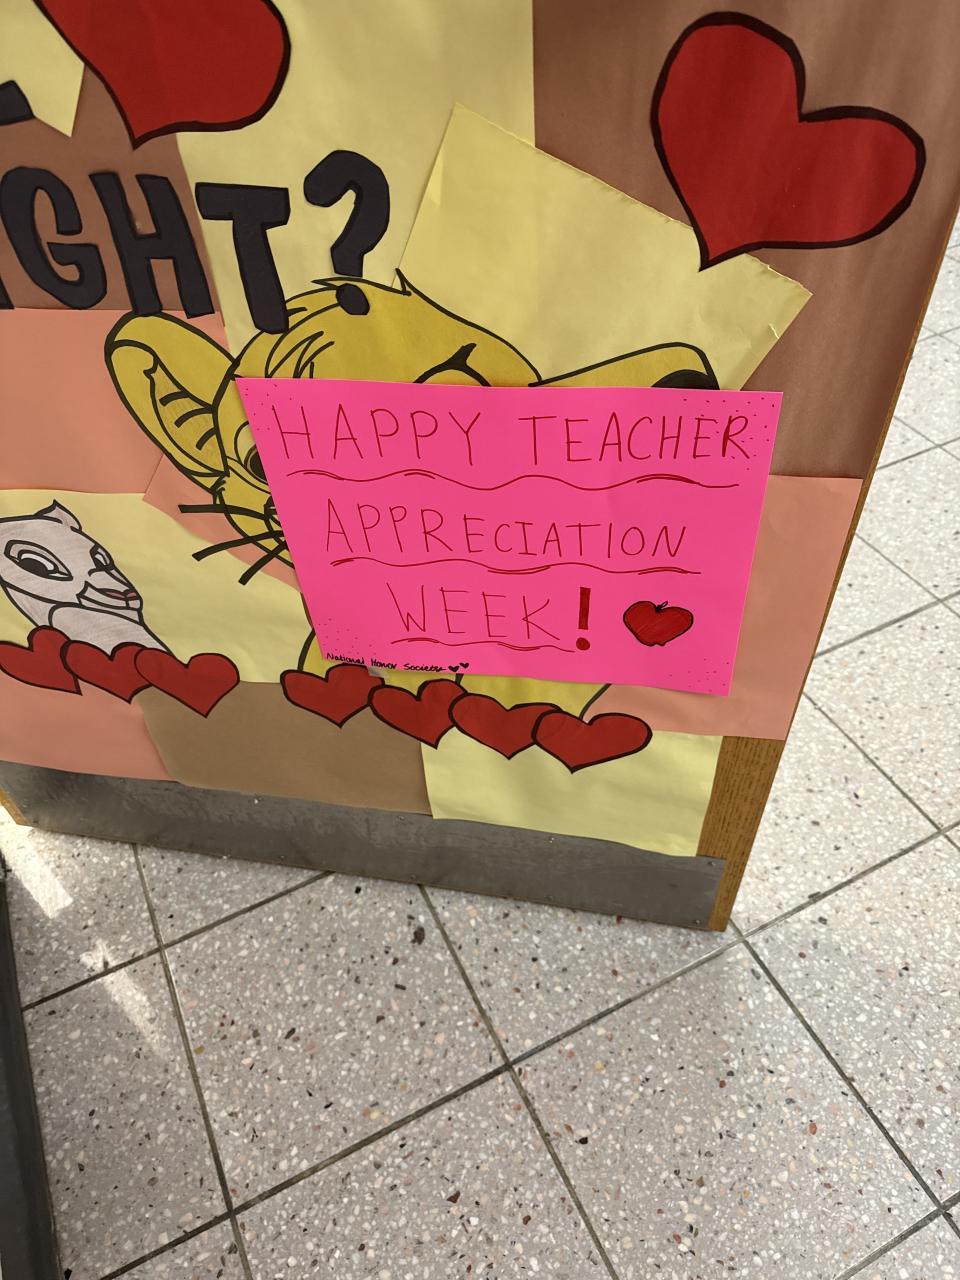 IGHT?
HAPPY TEACHER
APPRECIATION
WEEK!
National Honor Society